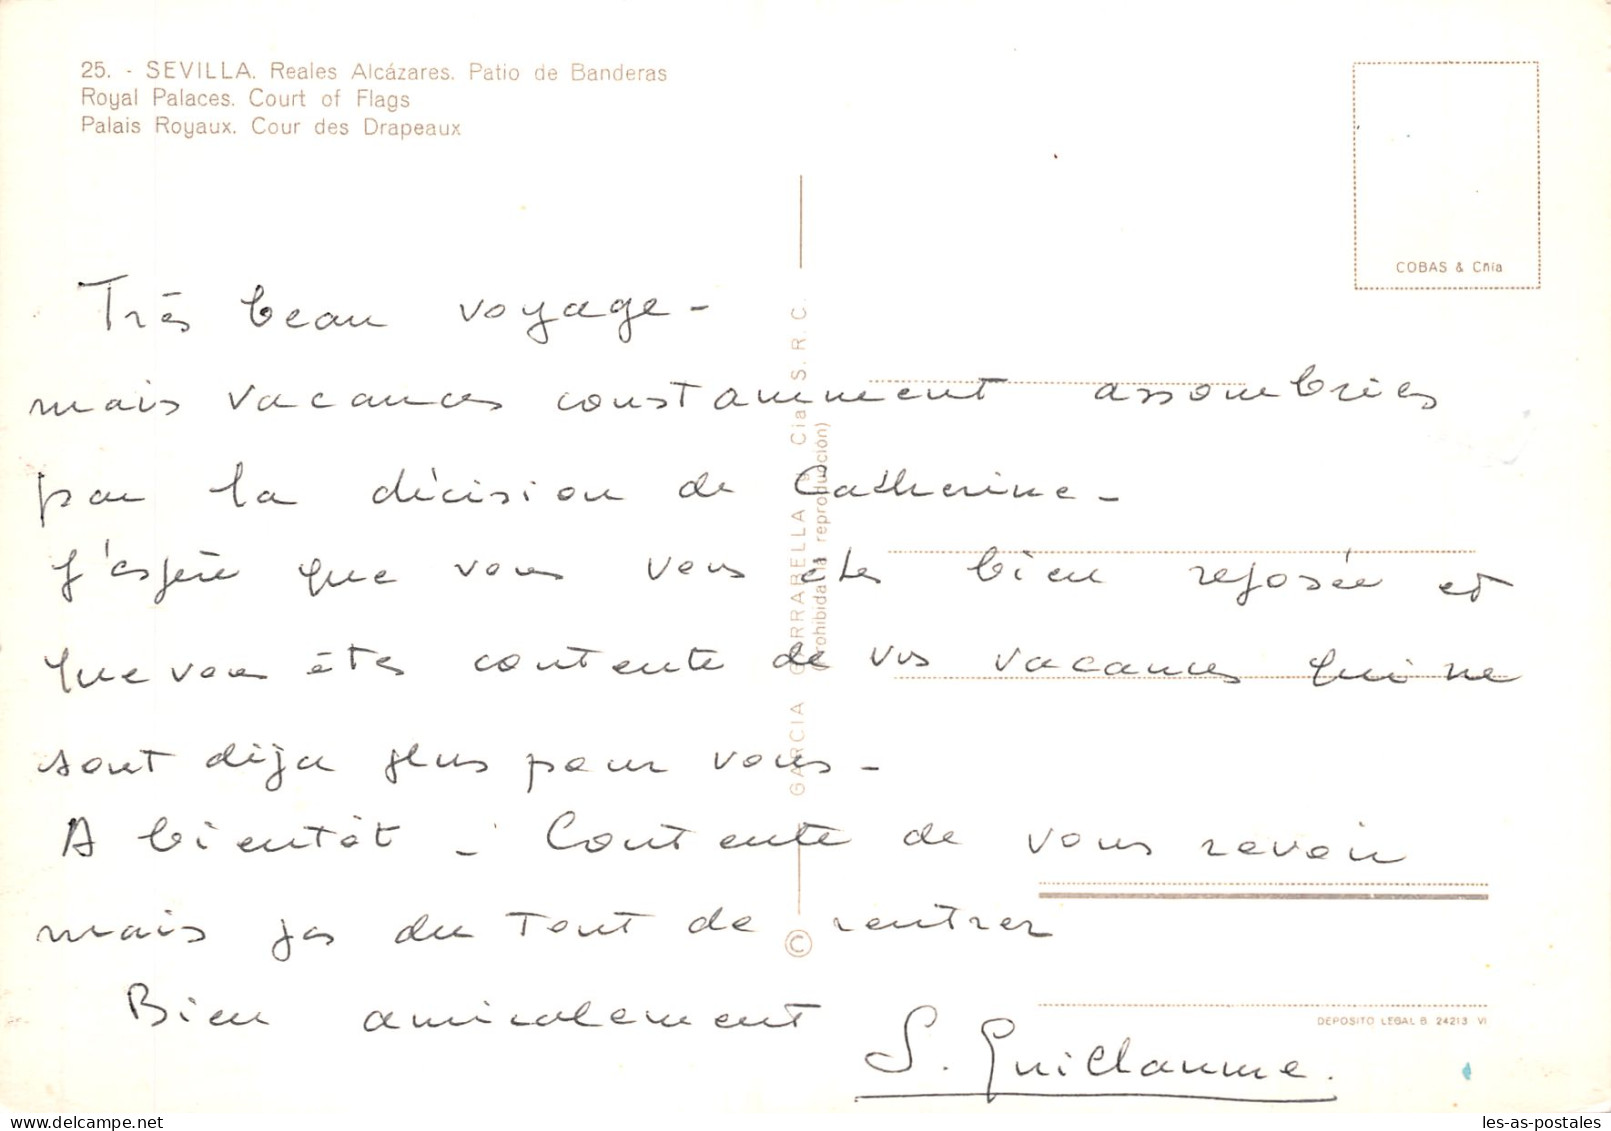 25. - SEVILLA. Reales Alcázares. Patio de Banderas
Royal Palaces. Court of Flags
Palais Royaux. Cour des Drapeaux
COBAS & Cñia
GARCIA GARRABELLA y Cia S. R. C.
(Prohibida la reproducción)
©
Très beau voyage -
mais vacances constamment assombries
par la décision de Catherine -
J'espère que vous vous êtes bien reposée et
que vous êtes contente de vos vacances qui ne
sont déja plus pour vous -
A bientôt - Contente de vous revoir
mais pas du tout de rentrer
Bien amicalement
S. Guillaume.
DEPOSITO LEGAL B. 24213 VI
les-as-postales